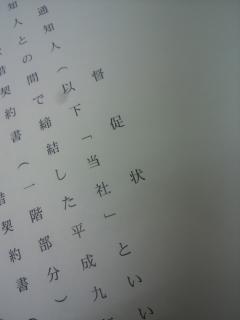 督促状
通知人（以下「当社」とい
知人との間で締結した平成九
借契約書（一階部分）
借契約書